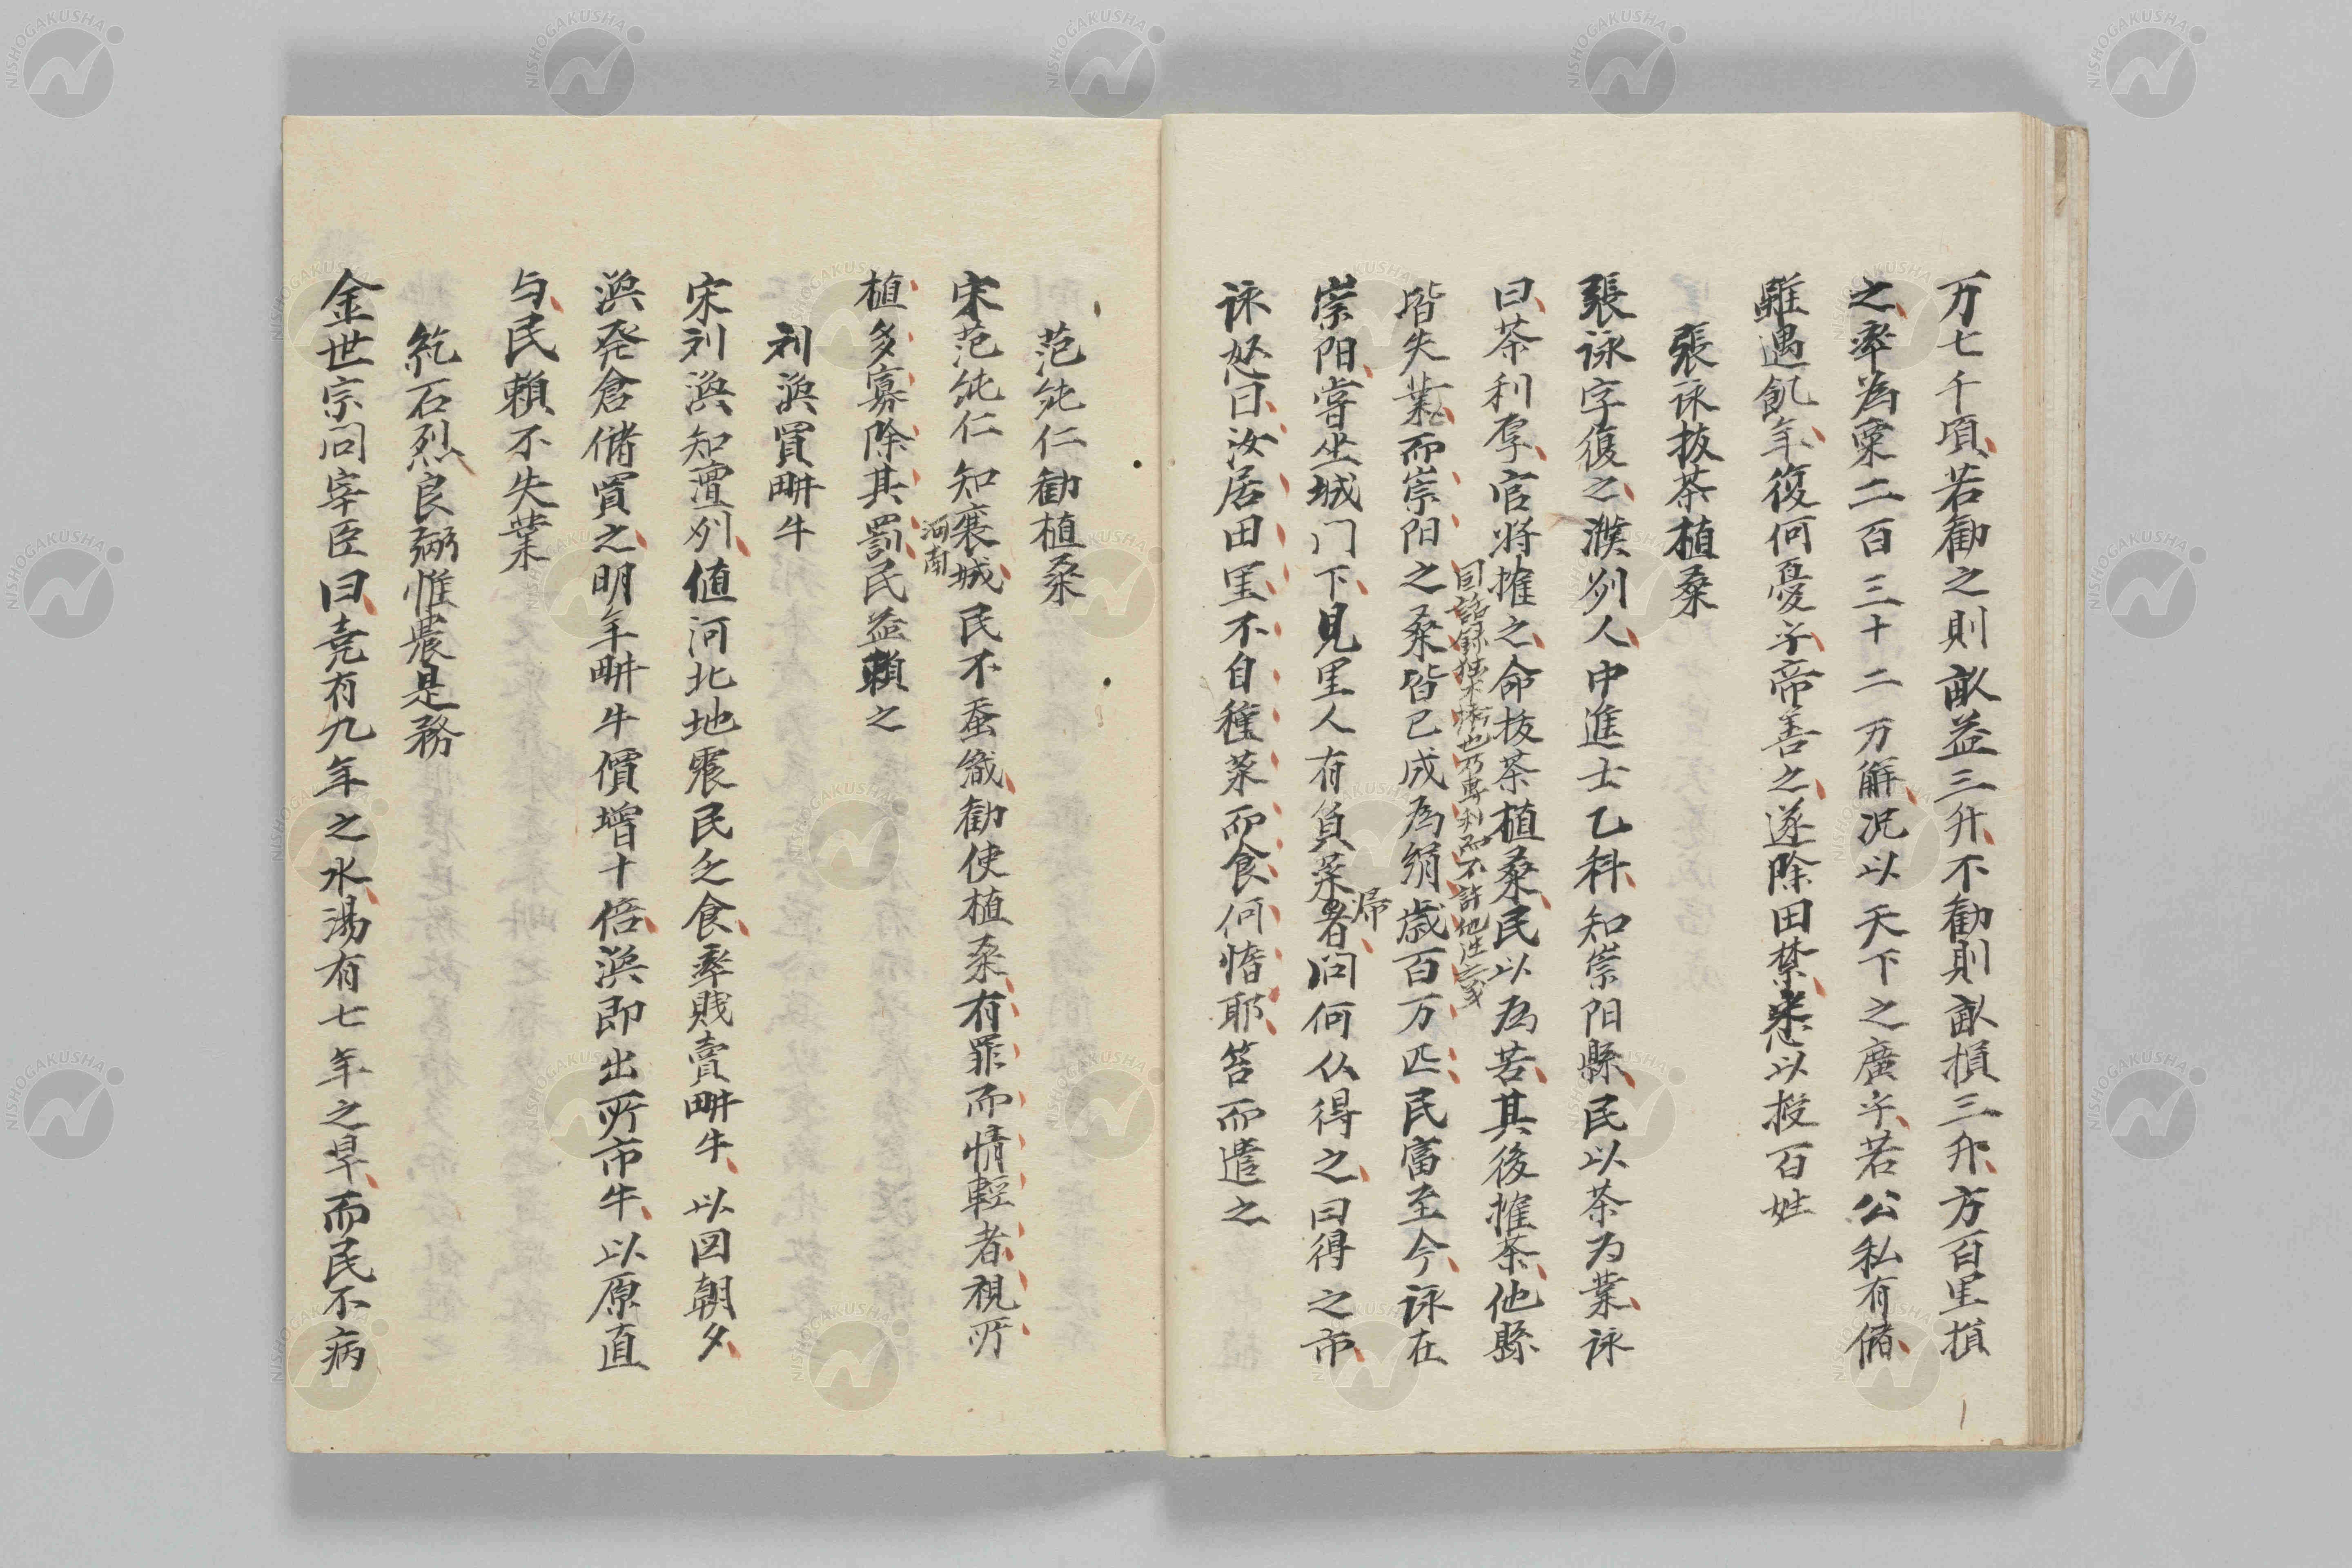 万七千頃若勧之則畝益三升不勧則畝損三升方百里損
之率為粟二百三十二万斛况以天下之廣乎若公私有儲
雖遇飢年復何憂乎帝善之遂除田禁悉以授百姓
張詠抜茶植桒
張詠字復之濮州人中進士乙科知崇阳縣民以茶为業詠
曰茶利厚官将搉之命抜茶植桒民以為苦其後搉茶他縣
皆失業而崇阳之桒皆已成為絹歳百万匹民富至今詠在
崇阳嘗坐城门下見里人有負菜者問何仏得之曰得之市
帰
詠怒曰汝居田里不自種菜而食何惰耶笞而遣之
范純仁勧植桒
宋范純仁知襄城民不蚕織勧使植桒有罪而情輕者視所
河南
植多寡除其罰民益賴之
刘渙買畊牛
宋刘渙知澶州値河北地震民乏食率賎賣畊牛以図朝夕
渙発倉儲買之明年畊牛價増十倍渙即出所市牛以原直
与民賴不失業
紇石烈良弼惟農是務
金世宗问宰臣曰尭有九年之水湯有七年之旱而民不病
NISHOGAKUSHA